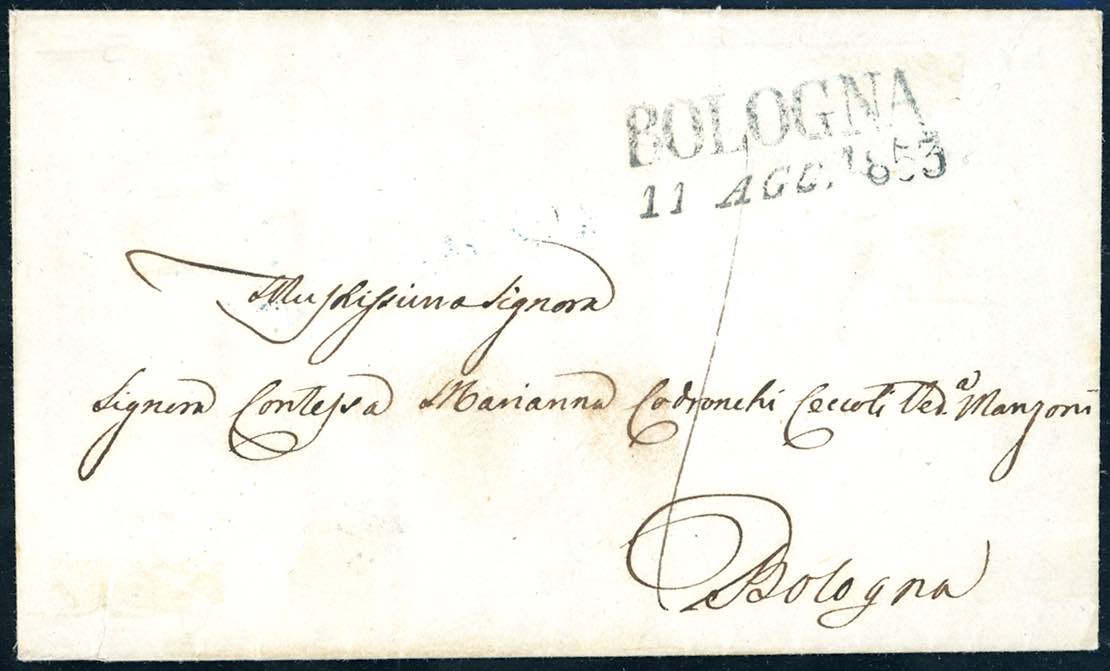 BOLOGNA
11 AGO. 1853
Illustrissima Signora
Signora Contessa Marianna Codronchi Ceccoli Ved.ª Manzoni
Bologna